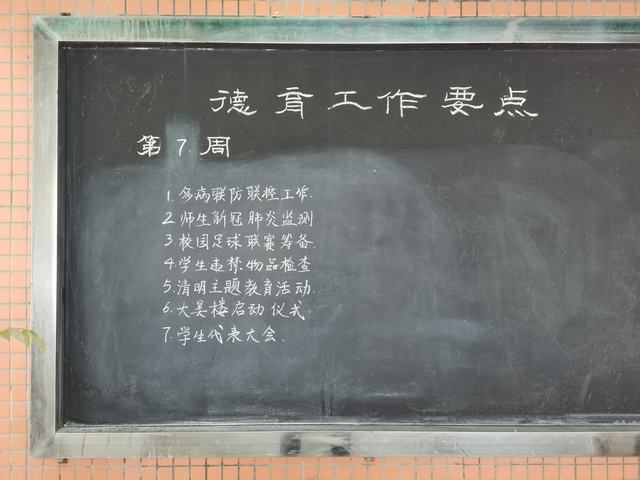 德育工作要点
第7周
1.多病联防联控工作.
2.师生新冠肺炎监测
3.校园足球联赛筹备.
4.学生违禁物品检查
5.清明主题教育活动.
6.大美楼启动仪式.
7.学生代表大会.